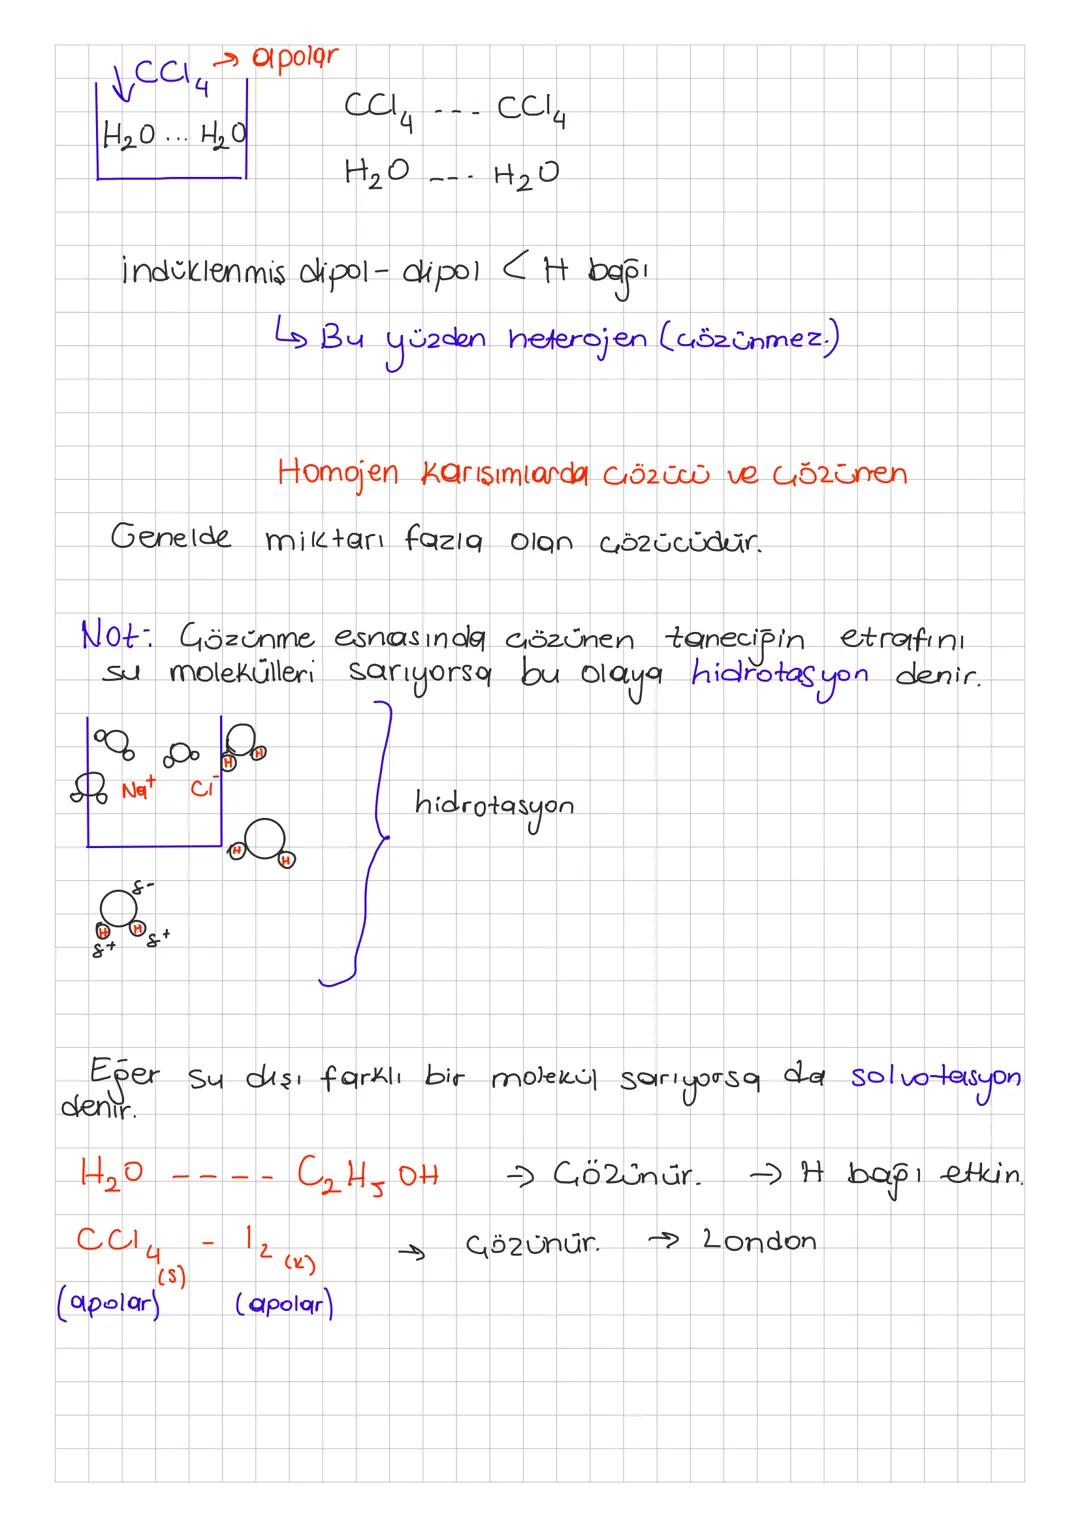 ↓CCl₄ → apolar
H₂O ... H₂O
CCl₄ --- CCl₄
H₂O --- H₂O
indüklenmiş dipol - dipol < H bağı
↳ Bu yüzden heterojen (Çözünmez.)
Homojen Karışımlarda Çözücü ve Çözünen
Genelde miktarı fazla olan Çözücüdür.
Not: Çözünme esnasında Çözünen taneciğin etrafını
su molekülleri sarıyorsa bu olaya hidrotasyon denir.
H H
Na⁺ Cl⁻
hidrotasyon
H H
δ-
H H
δ+ δ+
Eğer su dışı farklı bir molekül sarıyorsa da solvotasyon
denir.
H₂O ---- C₂H₅OH → Çözünür. → H bağı etkin.
CCl₄(s) - I₂(k) → Çözünür. → London
(apolar) (apolar)